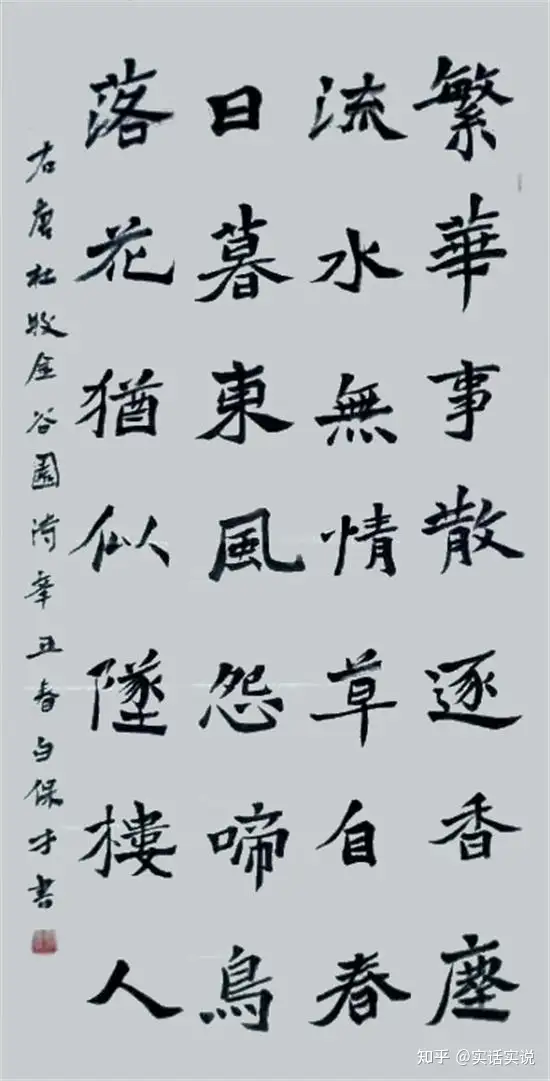 繁華事散逐香塵
流水無情草自春
日暮東風怨啼鳥
落花猶似墜樓人
右唐杜牧金谷園詩辛丑春白保才書
知乎 @实话实说